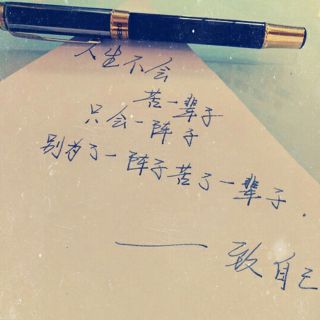 人生不会
苦一辈子
只会一阵子
别为了一阵子苦了一辈子.
——致自己